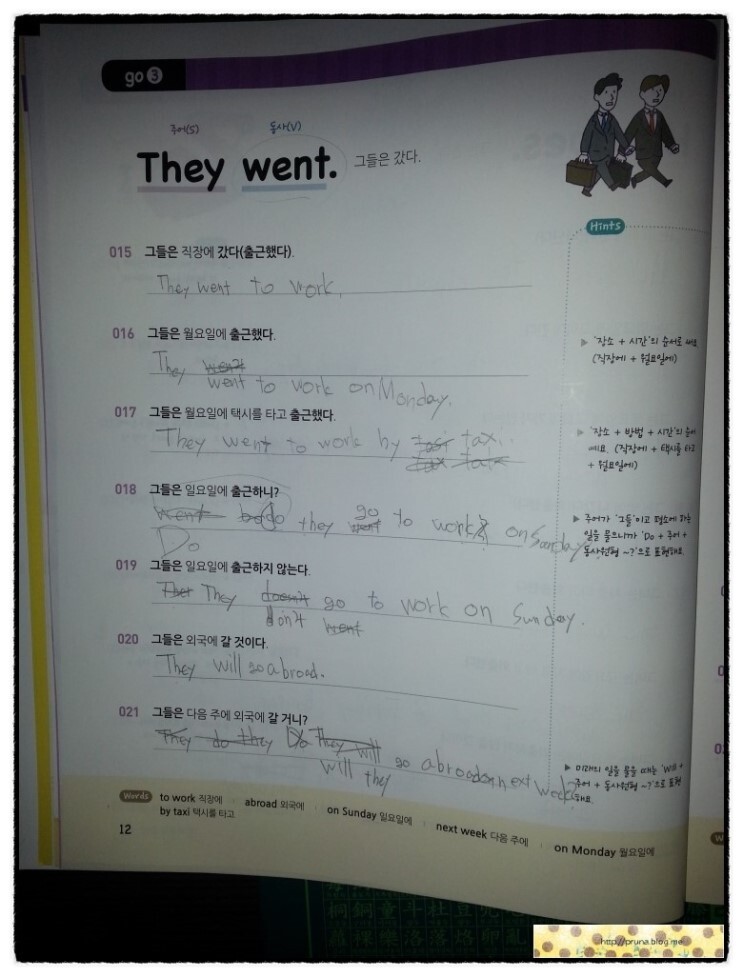 go 3
주어(S) 동사(V)
They went. 그들은 갔다.
Hints
015 그들은 직장에 갔다(출근했다).
They went to work.
016 그들은 월요일에 출근했다.
They went
went to work on Monday.
▶ '장소 + 시간'의 순서로 써요.
(직장에 + 월요일에)
017 그들은 월요일에 택시를 타고 출근했다.
They went to work by taxi tax..
▶ '장소 + 방법 + 시간'의 순서
예요. (직장에 + 택시를 타고
+ 월요일에)
018 그들은 일요일에 출근하니?
Went they go to work on Sunday
Do
▶ 주어가 '그들'이고 평소에 하는
일을 물으니까 'Do + 주어 +
동사원형 ~?'으로 표현해요.
019 그들은 일요일에 출근하지 않는다.
They doesn't go to work on Sunday.
don't went
020 그들은 외국에 갈 것이다.
They will go abroad.
021 그들은 다음 주에 외국에 갈 거니?
They do they Do They will go abroad next week?
will they
▶ 미래의 일을 물을 때는 'Will +
주어 + 동사원형 ~?'으로 표현
해요.
Words to work 직장에 abroad 외국에 on Sunday 일요일에 next week 다음 주에 on Monday 월요일에
by taxi 택시를 타고
12
http://pruna.blog.me